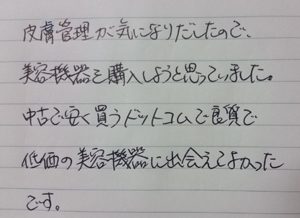 皮膚管理が気になりだしたので、
美容機器を購入しようと思っていました。
中古で安く買うドットコムで良質で
低価の美容機器に出会えてよかった
です。